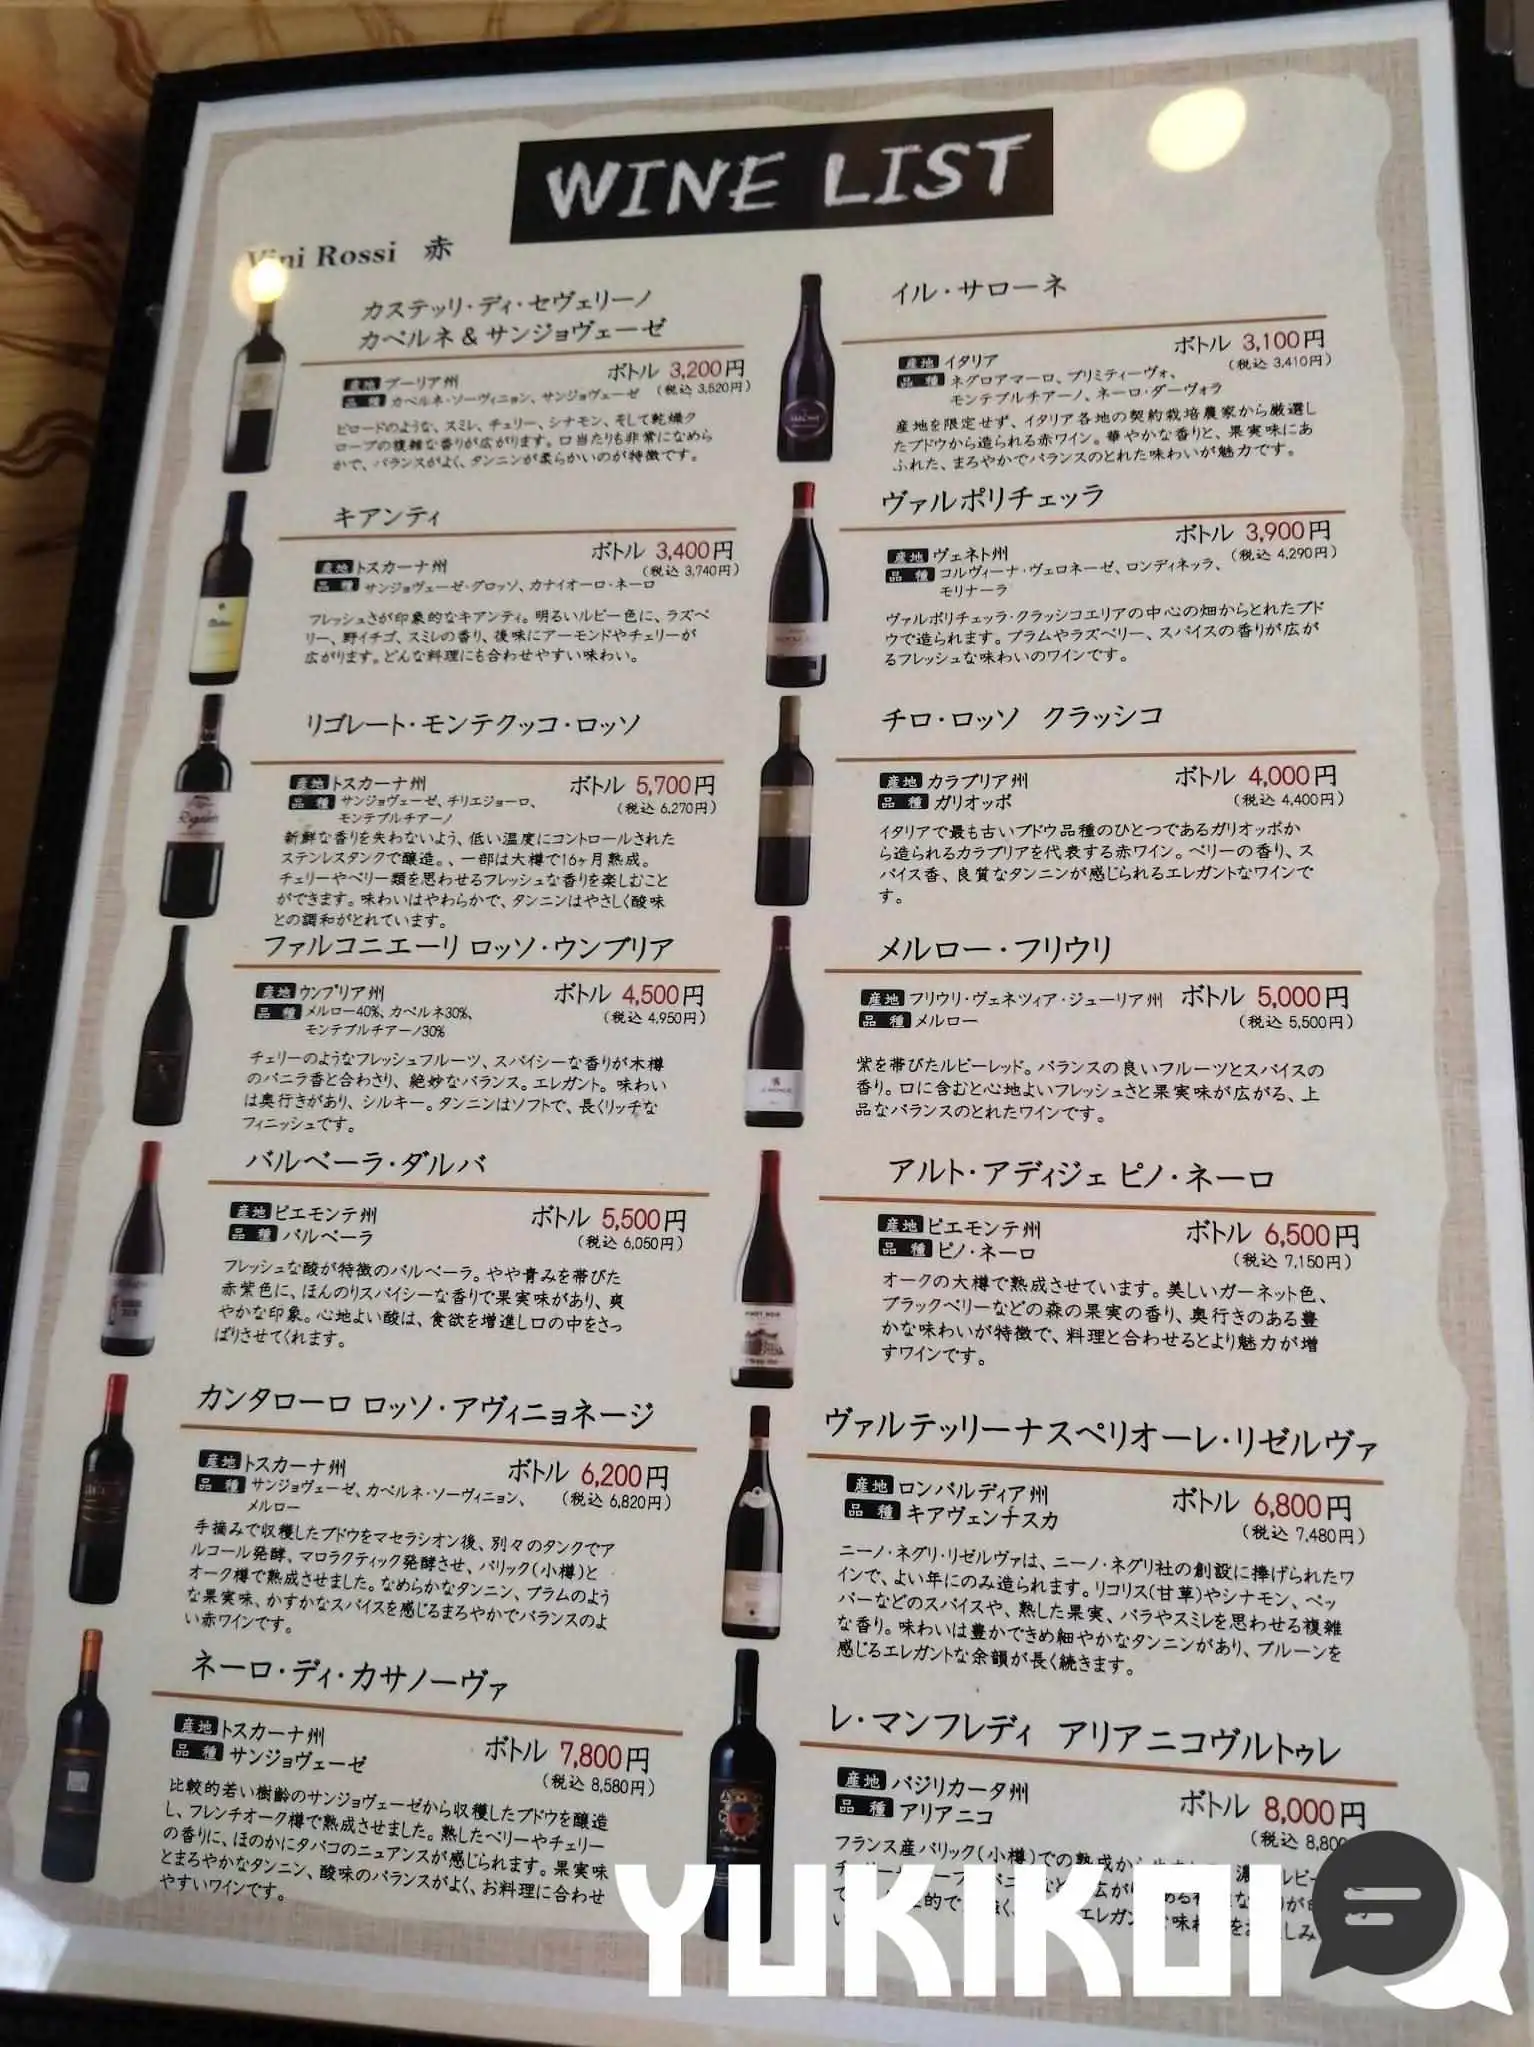 WINE LIST
Vini Rossi 赤
カステッリ・ディ・セヴェリーノ
カベルネ & サンジョヴェーゼ
ボトル 3,200円
産地 プーリア州
(税込 3,520円)
品種 カベルネ・ソーヴィニョン、サンジョヴェーゼ
ビロードのような、スミレ、チェリー、シナモン、そして乾燥ク
ローブの複雑な香りが広がります。口当たりも非常になめら
かで、バランスがよく、タンニンが柔らかいのが特徴です。
キアンティ
ボトル 3,400円
産地 トスカーナ州
(税込 3,740円)
品種 サンジョヴェーゼ・グロッソ、カナイオーロ・ネーロ
フレッシュさが印象的なキアンティ。明るいルビー色に、ラズベ
リー、野イチゴ、スミレの香り、後味にアーモンドやチェリーが
広がります。どんな料理にも合わせやすい味わい。
リゴレート・モンテクッコ・ロッソ
産地 トスカーナ州
ボトル 5,700円
品種 サンジョヴェーゼ、チリエジョーロ、
(税込 6,270円)
モンテプルチアーノ
新鮮な香りを失わないよう、低い温度にコントロールされた
ステンレスタンクで醸造。、一部は大樽で16ヶ月熟成。
チェリーやベリー類を思わせるフレッシュな香りを楽しむこと
ができます。味わいはやわらかで、タンニンはやさしく酸味
との調和がとれています。
ファルコニエーリ ロッソ・ウンブリア
産地 ウンブリア州
ボトル 4,500円
品種 メルロー40%、カベルネ30%、
(税込 4,950円)
モンテプルチアーノ30%
チェリーのようなフレッシュフルーツ、スパイシーな香りが木樽
のバニラ香と合わさり、絶妙なバランス。エレガント。味わい
は奥行きがあり、シルキー。タンニンはソフトで、長くリッチな
フィニッシュです。
バルベーラ・ダルバ
産地 ピエモンテ州
ボトル 5,500円
品種 バルベーラ
(税込 6,050円)
フレッシュな酸が特徴のバルベーラ。やや青みを帯びた
赤紫色に、ほんのりスパイシーな香りで果実味があり、爽
やかな印象。心地よい酸は、食欲を増進し口の中をさっ
ぱりさせてくれます。
カンタローロ ロッソ・アヴィニョネージ
産地 トスカーナ州
ボトル 6,200円
品種 サンジョヴェーゼ、カベルネ・ソーヴィニョン、
(税込 6,820円)
メルロー
手摘みで収穫したブドウをマセラシオン後、別々のタンクでア
ルコール発酵、マロラクティック発酵させ、バリック(小樽)と
オーク樽で熟成させました。なめらかなタンニン、プラムのよう
な果実味、かすかなスパイスを感じるまろやかでバランスのよ
い赤ワインです。
ネーロ・ディ・カサノーヴァ
産地 トスカーナ州
ボトル 7,800円
品種 サンジョヴェーゼ
(税込 8,580円)
比較的若い樹齢のサンジョヴェーゼから収穫したブドウを醸造
し、フレンチオーク樽で熟成させました。熟したベリーやチェリー
の香りに、ほのかにタバコのニュアンスが感じられます。果実味
とまろやかなタンニン、酸味のバランスがよく、お料理に合わせ
やすいワインです。
イル・サローネ
ボトル 3,100円
産地 イタリア
(税込 3,410円)
品種 ネグロアマーロ、プリミティーヴォ、
モンテプルチアーノ、ネーロ・ダーヴォラ
産地を限定せず、イタリア各地の契約栽培農家から厳選し
たブドウから造られる赤ワイン。華やかな香りと、果実味にあ
ふれた、まろやかでバランスのとれた味わいが魅力です。
ヴァルポリチェッラ
ボトル 3,900円
産地 ヴェネト州
(税込 4,290円)
品種 コルヴィーナ・ヴェロネーゼ、ロンディネッラ、
モリナーラ
ヴァルポリチェッラ・クラッシコエリアの中心の畑からとれたブド
ウで造られます。プラムやラズベリー、スパイスの香りが広が
るフレッシュな味わいのワインです。
チロ・ロッソ クラッシコ
産地 カラブリア州
ボトル 4,000円
品種 ガリオッポ
(税込 4,400円)
イタリアで最も古いブドウ品種のひとつであるガリオッポか
ら造られるカラブリアを代表する赤ワイン。ベリーの香り、ス
パイス香、良質なタンニンが感じられるエレガントなワインで
す。
メルロー・フリウリ
産地 フリウリ・ヴェネツィア・ジューリア州
ボトル 5,000円
品種 メルロー
(税込 5,500円)
紫を帯びたルビーレッド。バランスの良いフルーツとスパイスの
香り。口に含むと心地よいフレッシュさと果実味が広がる、上
品なバランスのとれたワインです。
アルト・アディジェ ピノ・ネーロ
産地 ピエモンテ州
ボトル 6,500円
品種 ピノ・ネーロ
(税込 7,150円)
オークの大樽で熟成させています。美しいガーネット色、
ブラックベリーなどの森の果実の香り、奥行きのある豊
かな味わいが特徴で、料理と合わせるとより魅力が増
すワインです。
ヴァルテッリーナスペリオーレ・リゼルヴァ
産地 ロンバルディア州
ボトル 6,800円
品種 キアヴェンナスカ
(税込 7,480円)
ニーノ・ネグリ・リゼルヴァは、ニーノ・ネグリ社の創設に捧げられたワ
インで、よい年にのみ造られます。リコリス(甘草)やシナモン、ペッ
パーなどのスパイスや、熟した果実、バラやスミレを思わせる複雑
な香り。味わいは豊かできめ細やかなタンニンがあり、プルーンを
感じるエレガントな余韻が長く続きます。
レ・マンフレディ アリアニコヴルトゥレ
産地 バジリカータ州
ボトル 8,000円
品種 アリアニコ
(税込 8,80
フランス産バリック(小樽)での熟成から
YUKIKOI